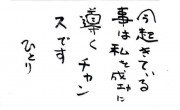 今起きている
事は私を成功に
導くチャン
スです
ひとり